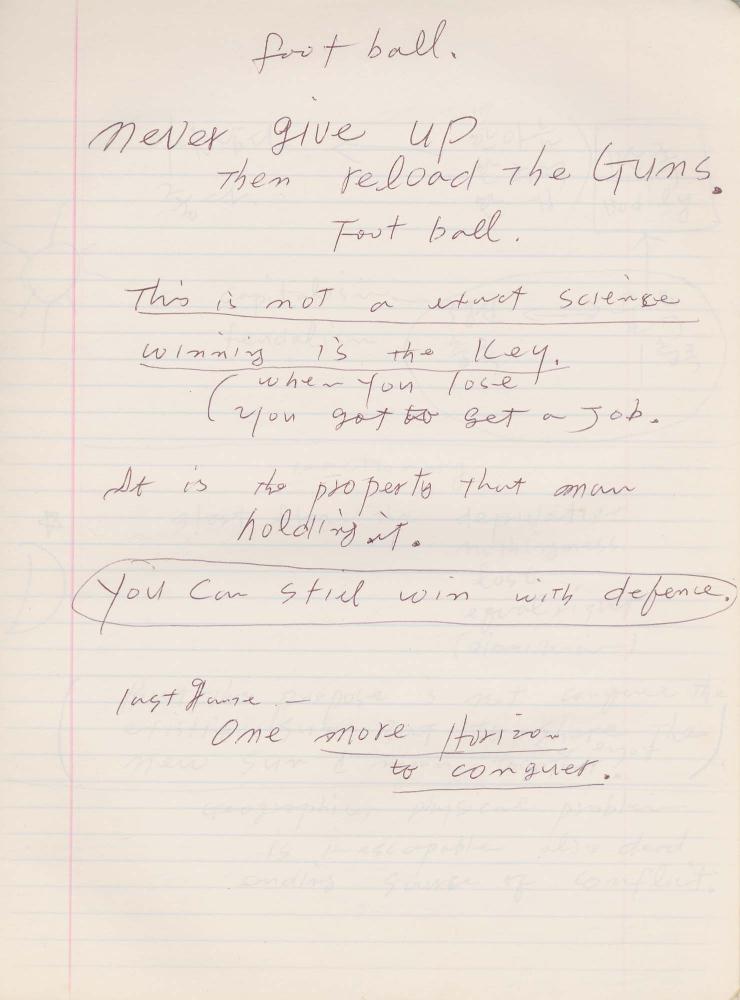 foot ball.
never give up
then reload the Guns.
Foot ball.
This is not a exact science
winning is the Key.
(when you lose
you got to get a Job.
It is the property that man
holding it.
you Can still win with defence.
last game —
One more Horizon
to conquer.